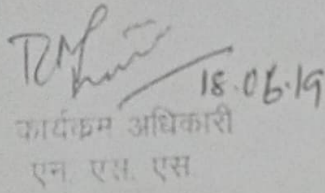 18.06.19
कार्यक्रम अधिकारी
एन. एस. एस